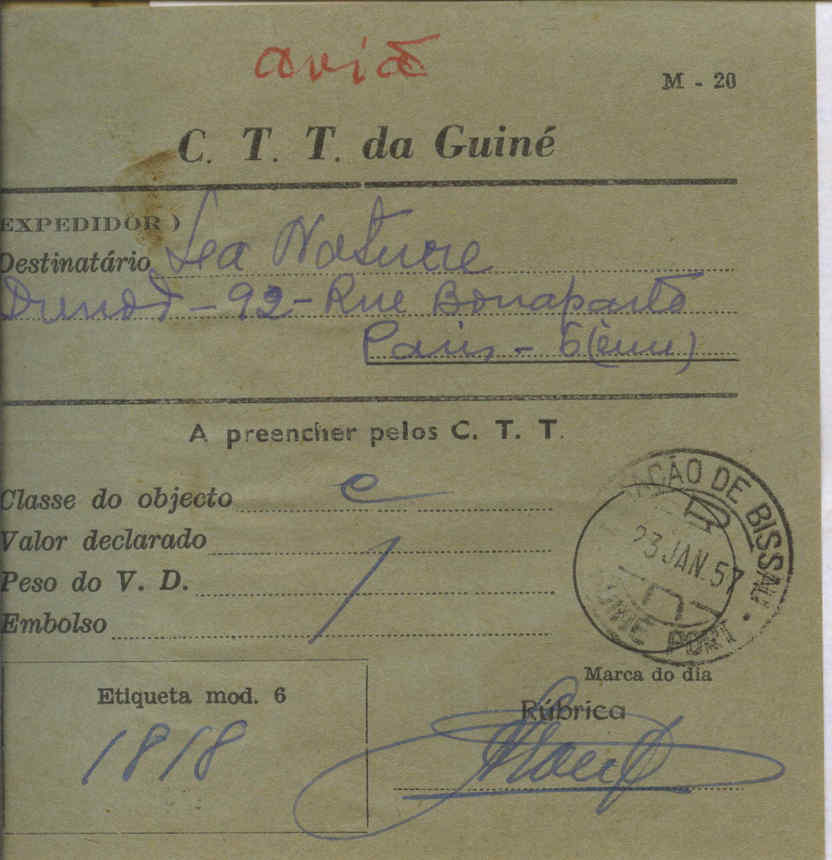 aviã
M - 20
C. T. T. da Guiné
EXPEDIDOR )
Destinatário
92 - Rue Bonaparte
Paris - 6 (ème)
A preencher pelos C. T. T.
Classe do objecto e
Valor declarado
Peso do V. D.
Embolso
AÇÃO DE BISSAU
23 JAN. 57
GUINÉ PORT.
Marca do dia
Etiqueta mod. 6
Rúbrica
1818